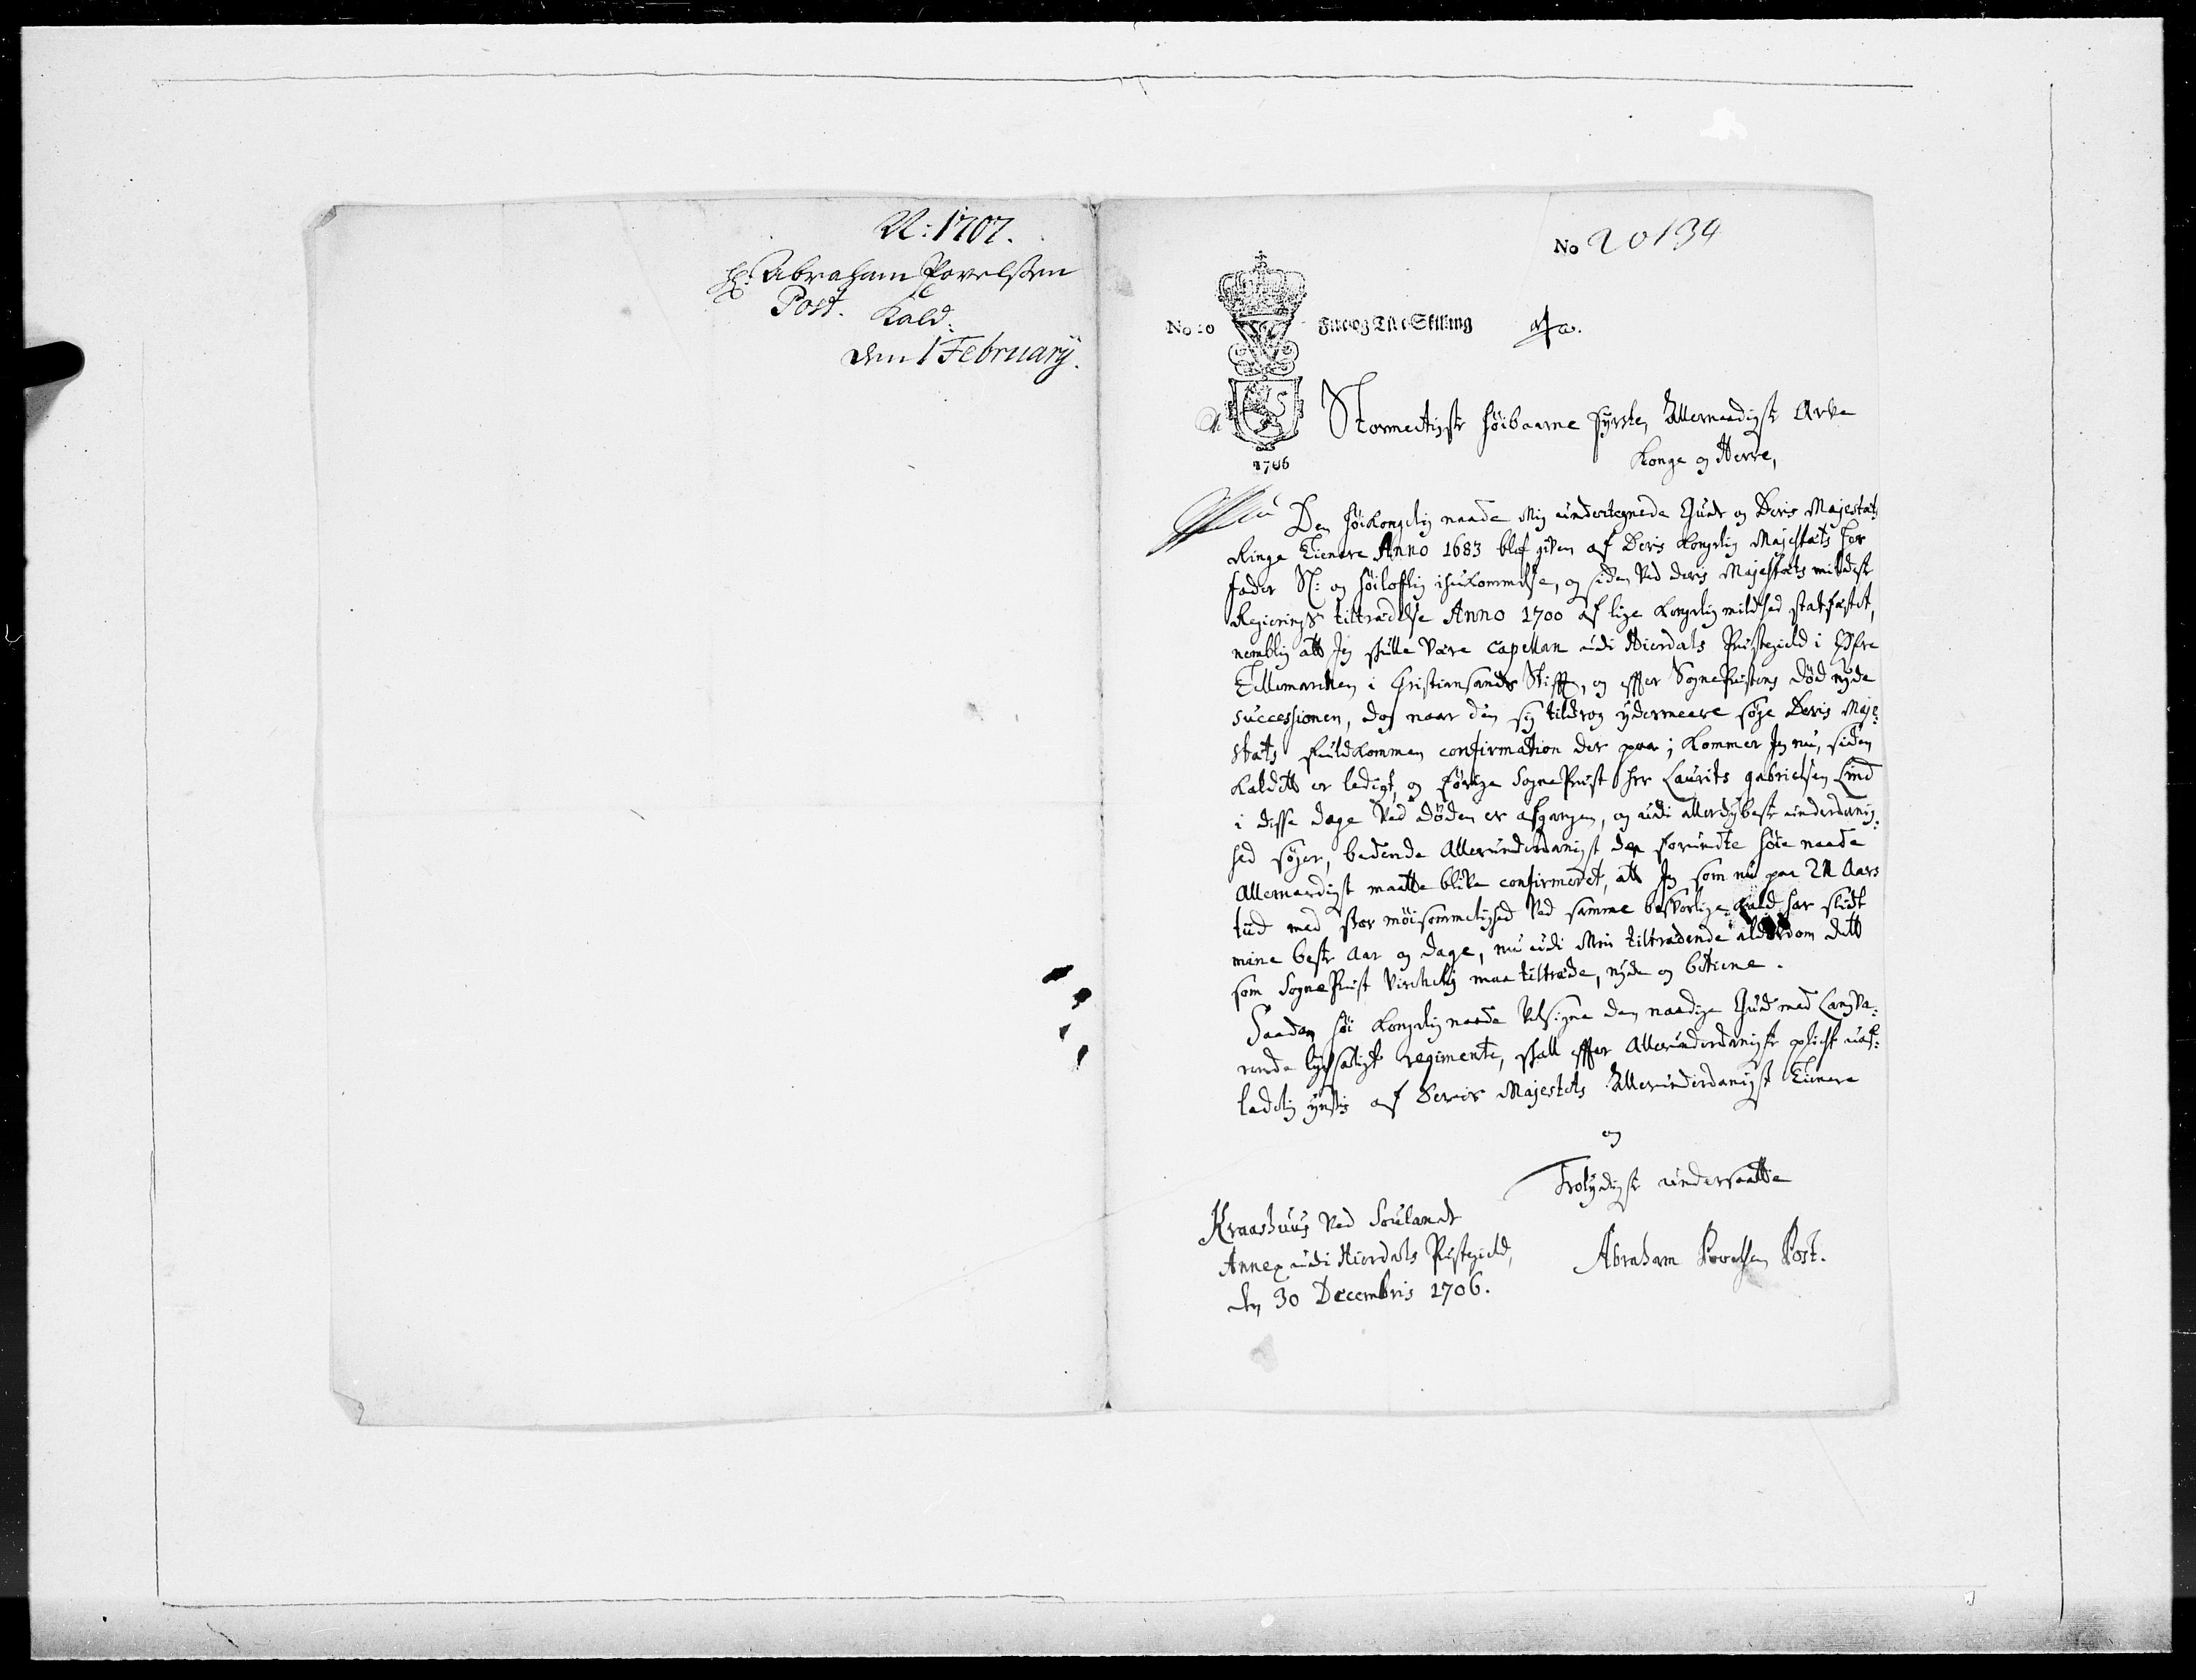 A: 1707.
Hr: Abraham Povelsen
Post. Kald.
den 1 February.
No 20134
No 10
Fire og Tive Skilling
1706
Stormectigste Høibaarne Fyrste, Allernaadigste Arve
Konge og Herre,
Den høikongelig naade mig undertegnede Guds og Deris Majestæts
Ringe Tienere Anno 1683 blef given af Deris kongelig Majestæts Her
fader S: og høiloflig ihukommelse, og siden ved deris Majestæts mildeste
Regierings tiltrædelse Anno 1700 af lige kongelig mildhed stadfæstet,
nemblig att Jeg skulle være Capellan udi Hierdals Prestegield i Øfre
Tellemarcken i Christiansands Stifft, og effter SognePrestens død nyde
successionen, dog naar den sig tildrog ydermeere søge Deris Maje-
stæts fuldkommen confirmation der paa; kommer Jeg nu, siden
kaldett er ledigt, og forige SognePrest Her Laurits Gabrielsen Lind
i disse dage ved døden er afgangen, og udi allerdybeste underdanig-
hed søger, bedende Allerunderdanigst den forundte høie naade
Allernaadigst maatte blive confirmeret, att Jeg som nu paa 24 Aars
tiid med stor møisommelighed ved samme besverlige kald har slidt
mine beste Aar og dage, nu udi min tiltrædende alderdom dett
som SognePrest virchelig maa tiltræde, nyde og betiene.
Saadan høi kongelig naade velsigne den naadige Gud med langva-
rende lycksaligt regimente, skall effter Allerunderdanigste plicht uaf-
ladelig ynskis af Deris Majestets Allerunderdanigst Tienere
og
Trolydigste undersaatte
Kraashuus ved Soulandt
Annex udi Hierdals Prestegield,
den 30 Decembris 1706.
Abraham Povelsen Post.